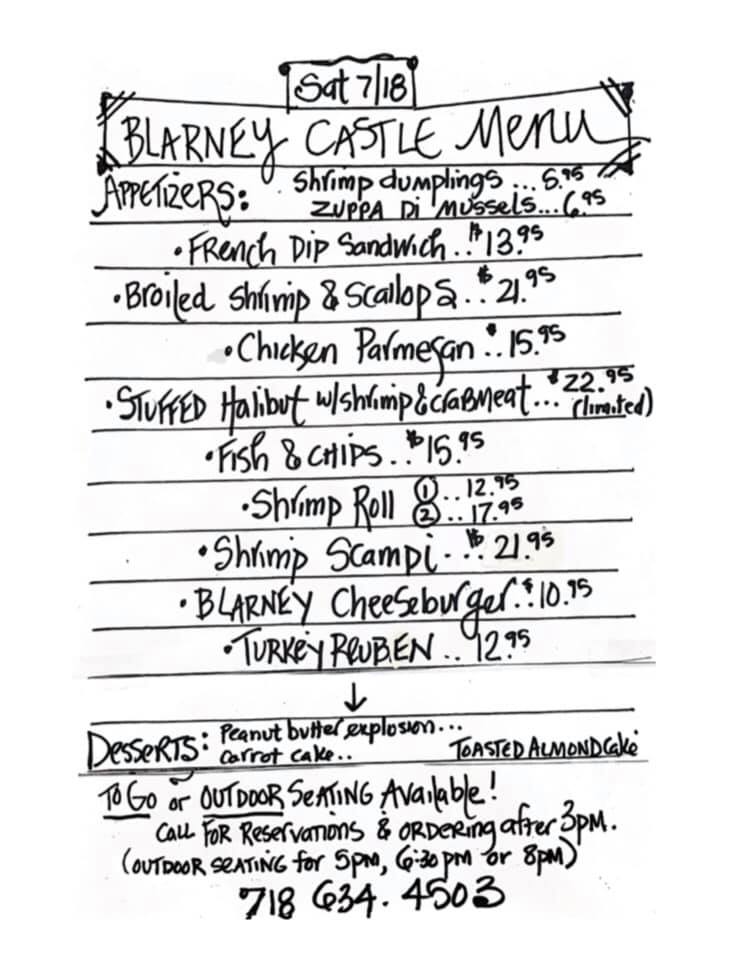 Sat 7/18
BLARNEY CASTLE Menu
APPETIZERS: Shrimp dumplings ... 5.95
ZUPPA Di Mussels...6.95
• FRench Dip Sandwich..$13.95
• Broiled Shrimp & Scallops..$21.95
• Chicken Parmesan $..15.95
• STUFFED Halibut w/shrimp & CRABMeat... $22.95
(limited)
• Fish & CHIPS..$15.95
• Shrimp Roll ①..12.95
②..17.95
• Shrimp Scampi...$21.95
• BLARNEY Cheeseburger..$10.95
• TURKEY REUBEN..12.95
↓
Desserts: Peanut butter explosion...
Carrot cake.. TOASTED ALMOND Cake
To Go or OUTDOOR SEATING Available!
CALL FOR Reservations & ORDERING after 3PM.
(OUTDOOR SEATING for 5pm, 6:30pm or 8pm)
718 634.4503